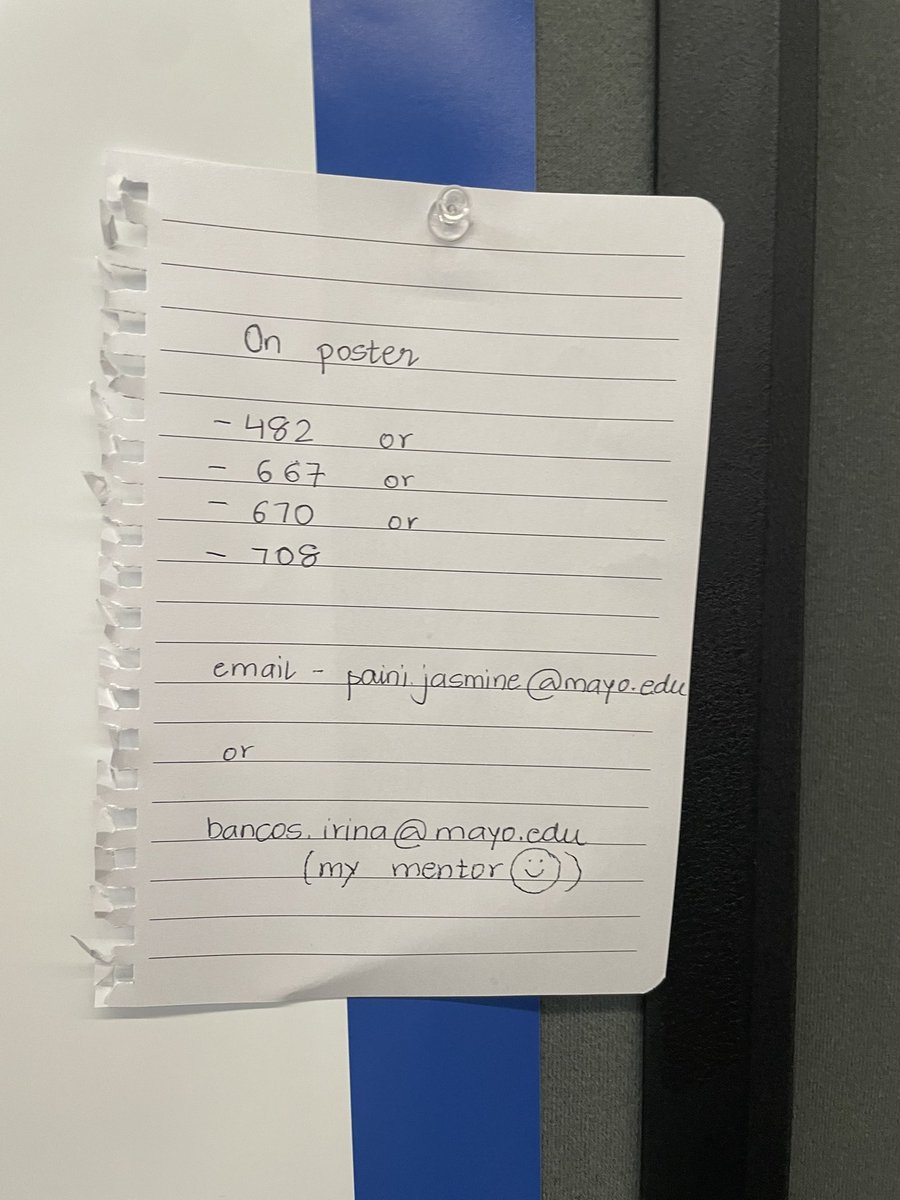 On poster
- 482 or
- 667 or
- 670 or
- 708
email - paini.jasmine@mayo.edu
or
bancos.irina@mayo.edu
(my mentor ☺)